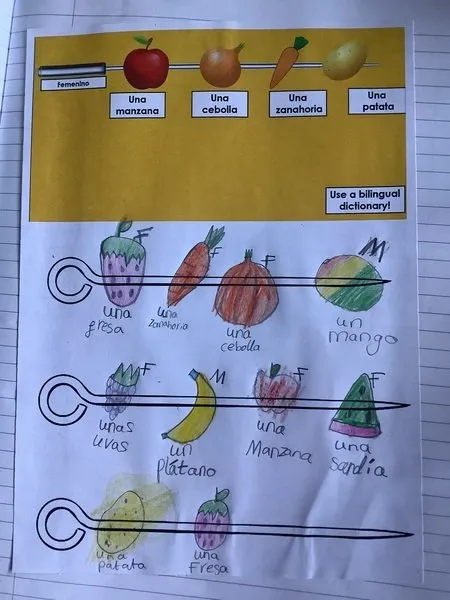 Femenino
Una manzana
Una cebolla
Una zanahoria
Una patata
Use a bilingual dictionary!
F
F
F
M
una fresa
una zanahoria
una cebolla
un mango
F
M
F
F
unas uvas
un plátano
una Manzana
una sandía
una patata
una Fresa